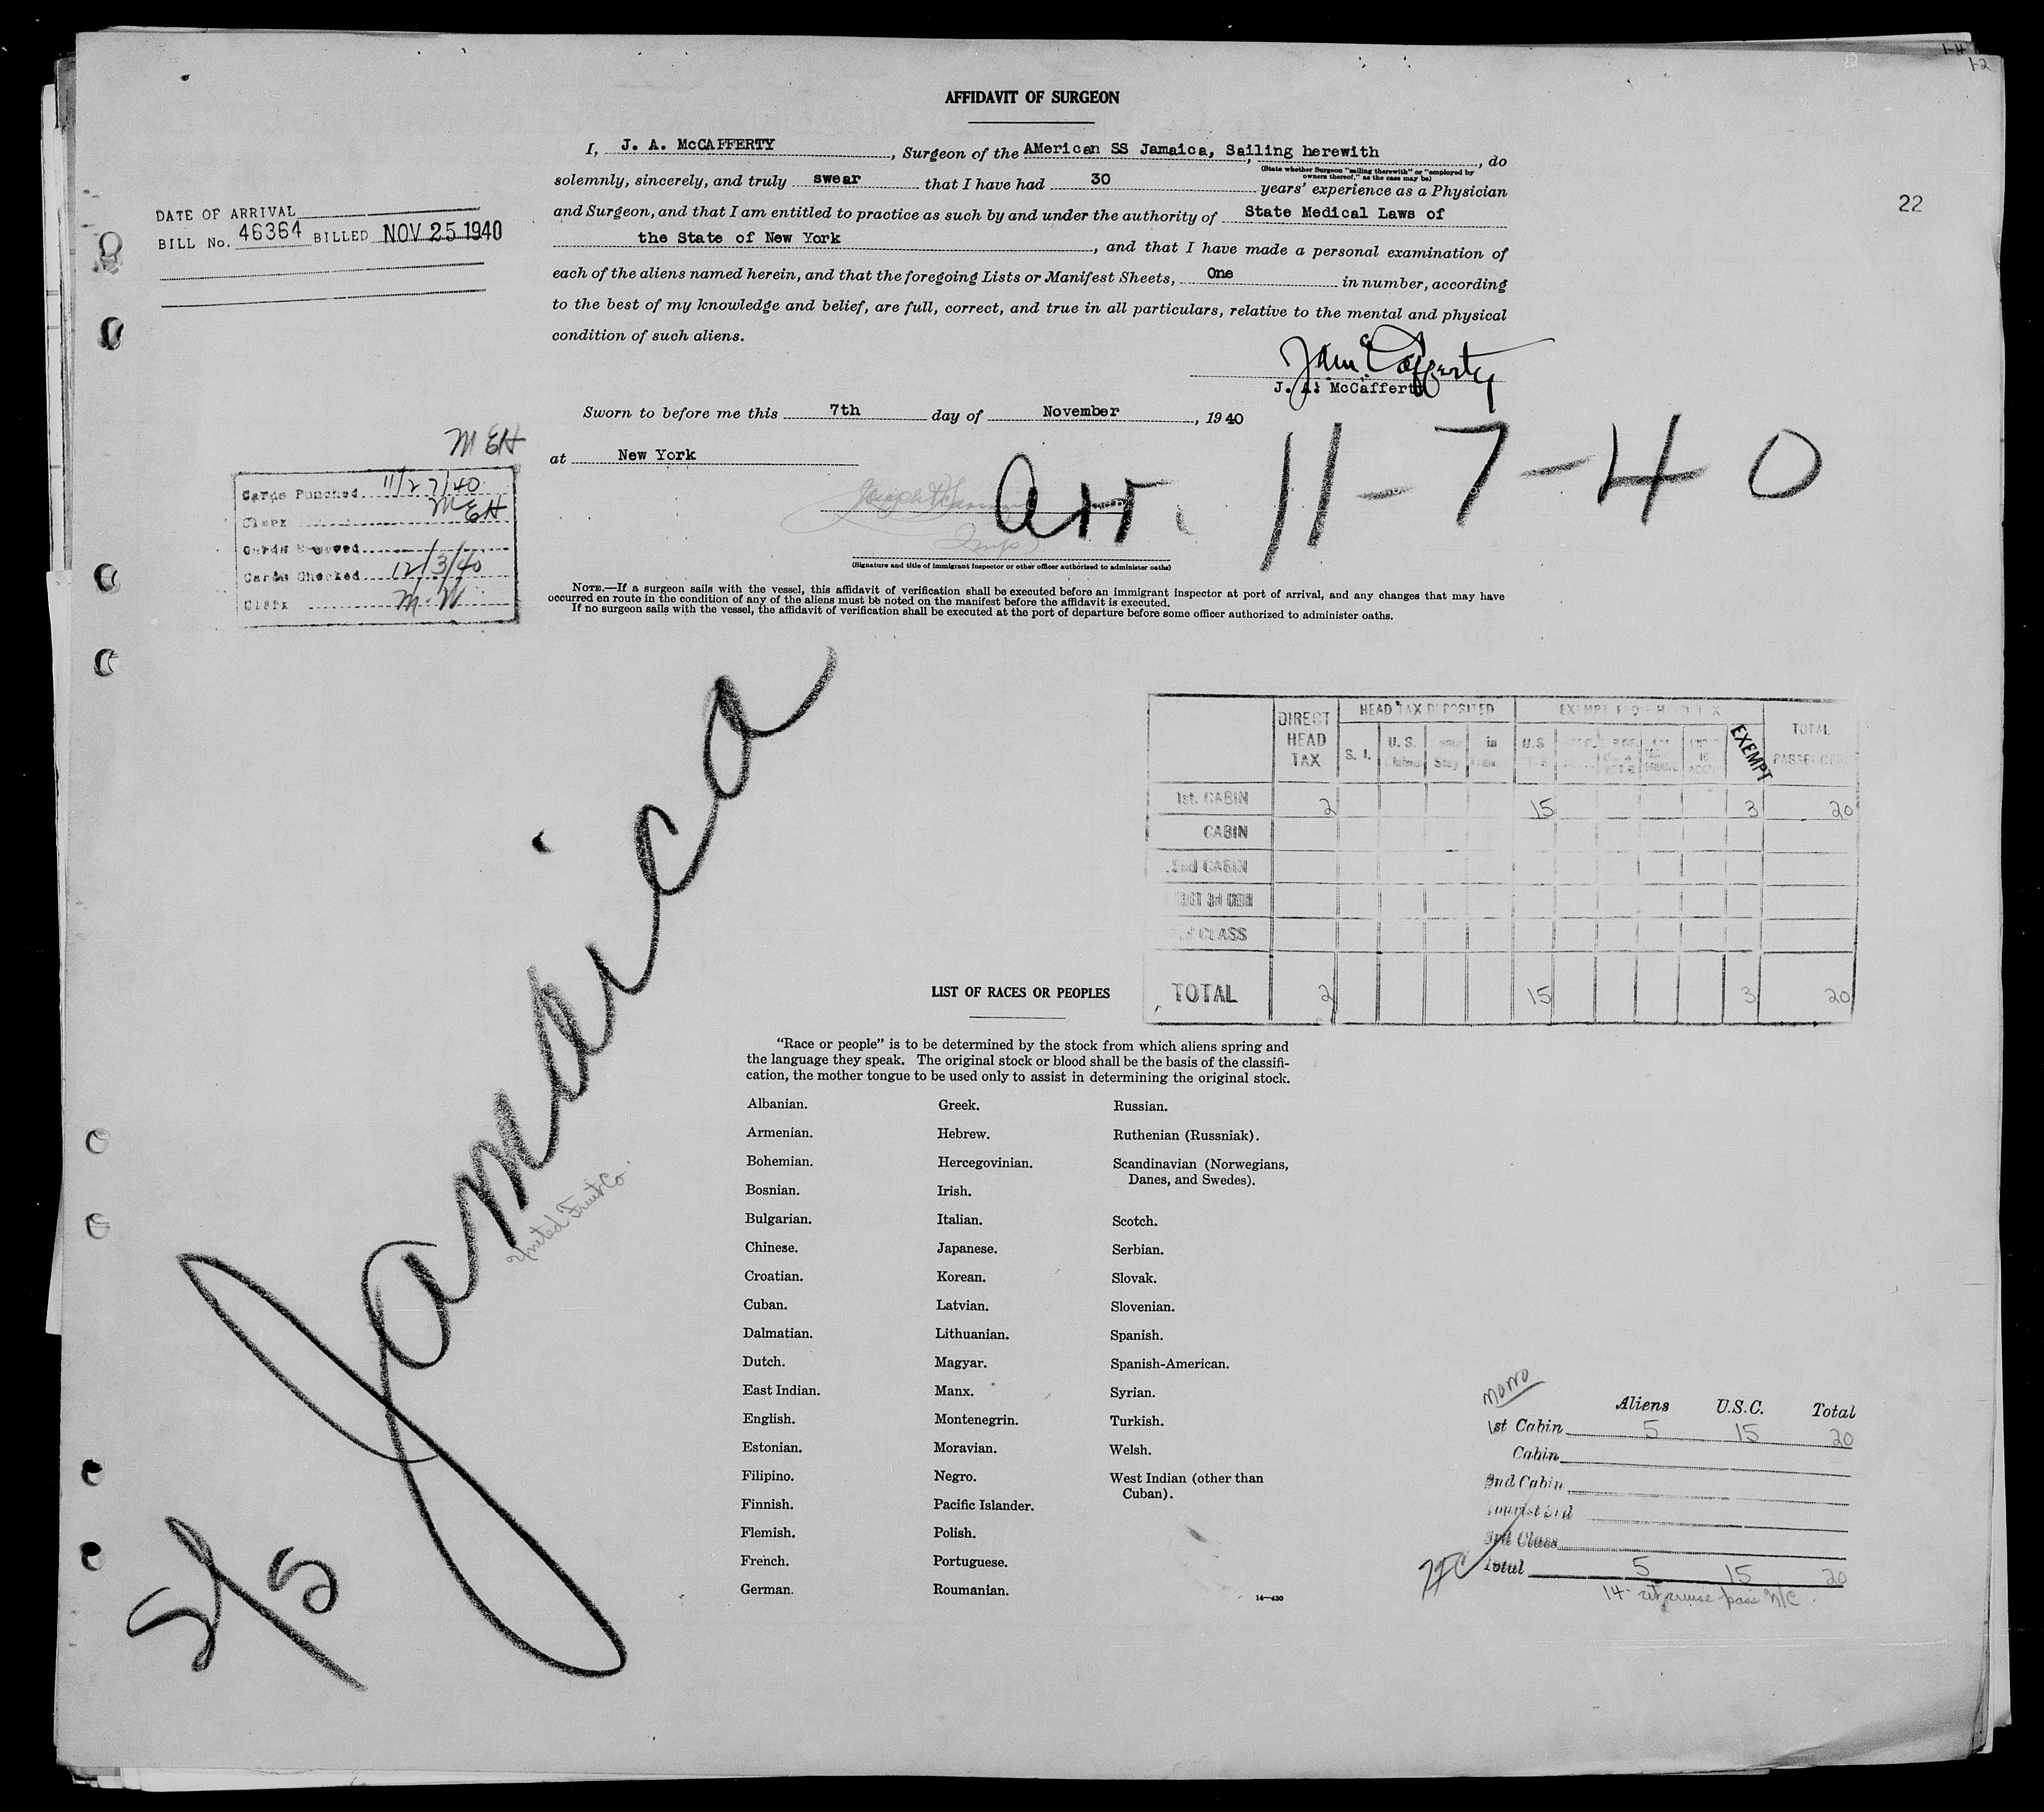 1-2
AFFIDAVIT OF SURGEON
I, J. A. McCAFFERTY, Surgeon of the AMerican SS Jamaica, Sailing herewith, do
(State whether Surgeon "sailing therewith" or "employed by owners thereof," as the case may be)
solemnly, sincerely, and truly swear that I have had 30 years' experience as a Physician
and Surgeon, and that I am entitled to practice as such by and under the authority of State Medical Laws of
the State of New York, and that I have made a personal examination of
each of the aliens named herein, and that the foregoing Lists or Manifest Sheets, One in number, according
to the best of my knowledge and belief, are full, correct, and true in all particulars, relative to the mental and physical
condition of such aliens.
22
DATE OF ARRIVAL
BILL No. 46364 BILLED NOV 25 1940
J. A. McCafferty
Sworn to before me this 7th day of November, 1940
at New York
arr. 11-7-40
(Signature and title of immigrant inspector or other officer authorized to administer oaths)
MEH
Cards Punched 11/27/40
Clerk MEH
Cards
Cards Checked 12/3/40
Clerk M.W.
NOTE.—If a surgeon sails with the vessel, this affidavit of verification shall be executed before an immigrant inspector at port of arrival, and any changes that may have
occurred en route in the condition of any of the aliens must be noted on the manifest before the affidavit is executed.
If no surgeon sails with the vessel, the affidavit of verification shall be executed at the port of departure before some officer authorized to administer oaths.
S/S Jamaica
United Fruit Co.
DIRECT HEAD TAX
HEAD TAX DEPOSITED
EXEMPT FROM HEAD TAX
TOTAL PASSENGERS
S. I.
U. S.
Stay
in
U.S
EXEMPT
1st. CABIN 2 15 3 20
CABIN
2nd CABIN
CLASS
TOTAL 2 15 3 20
LIST OF RACES OR PEOPLES
"Race or people" is to be determined by the stock from which aliens spring and
the language they speak. The original stock or blood shall be the basis of the classifi-
cation, the mother tongue to be used only to assist in determining the original stock.
Albanian.
Armenian.
Bohemian.
Bosnian.
Bulgarian.
Chinese.
Croatian.
Cuban.
Dalmatian.
Dutch.
East Indian.
English.
Estonian.
Filipino.
Finnish.
Flemish.
French.
German.
Greek.
Hebrew.
Hercegovinian.
Irish.
Italian.
Japanese.
Korean.
Latvian.
Lithuanian.
Magyar.
Manx.
Montenegrin.
Moravian.
Negro.
Pacific Islander.
Polish.
Portuguese.
Roumanian.
Russian.
Ruthenian (Russniak).
Scandinavian (Norwegians,
Danes, and Swedes).
Scotch.
Serbian.
Slovak.
Slovenian.
Spanish.
Spanish-American.
Syrian.
Turkish.
Welsh.
West Indian (other than
Cuban).
14—430
Aliens U.S.C. Total
1st Cabin 5 15 20
Cabin
2nd Cabin
Tourist 3rd
3rd Class
Total 5 15 20